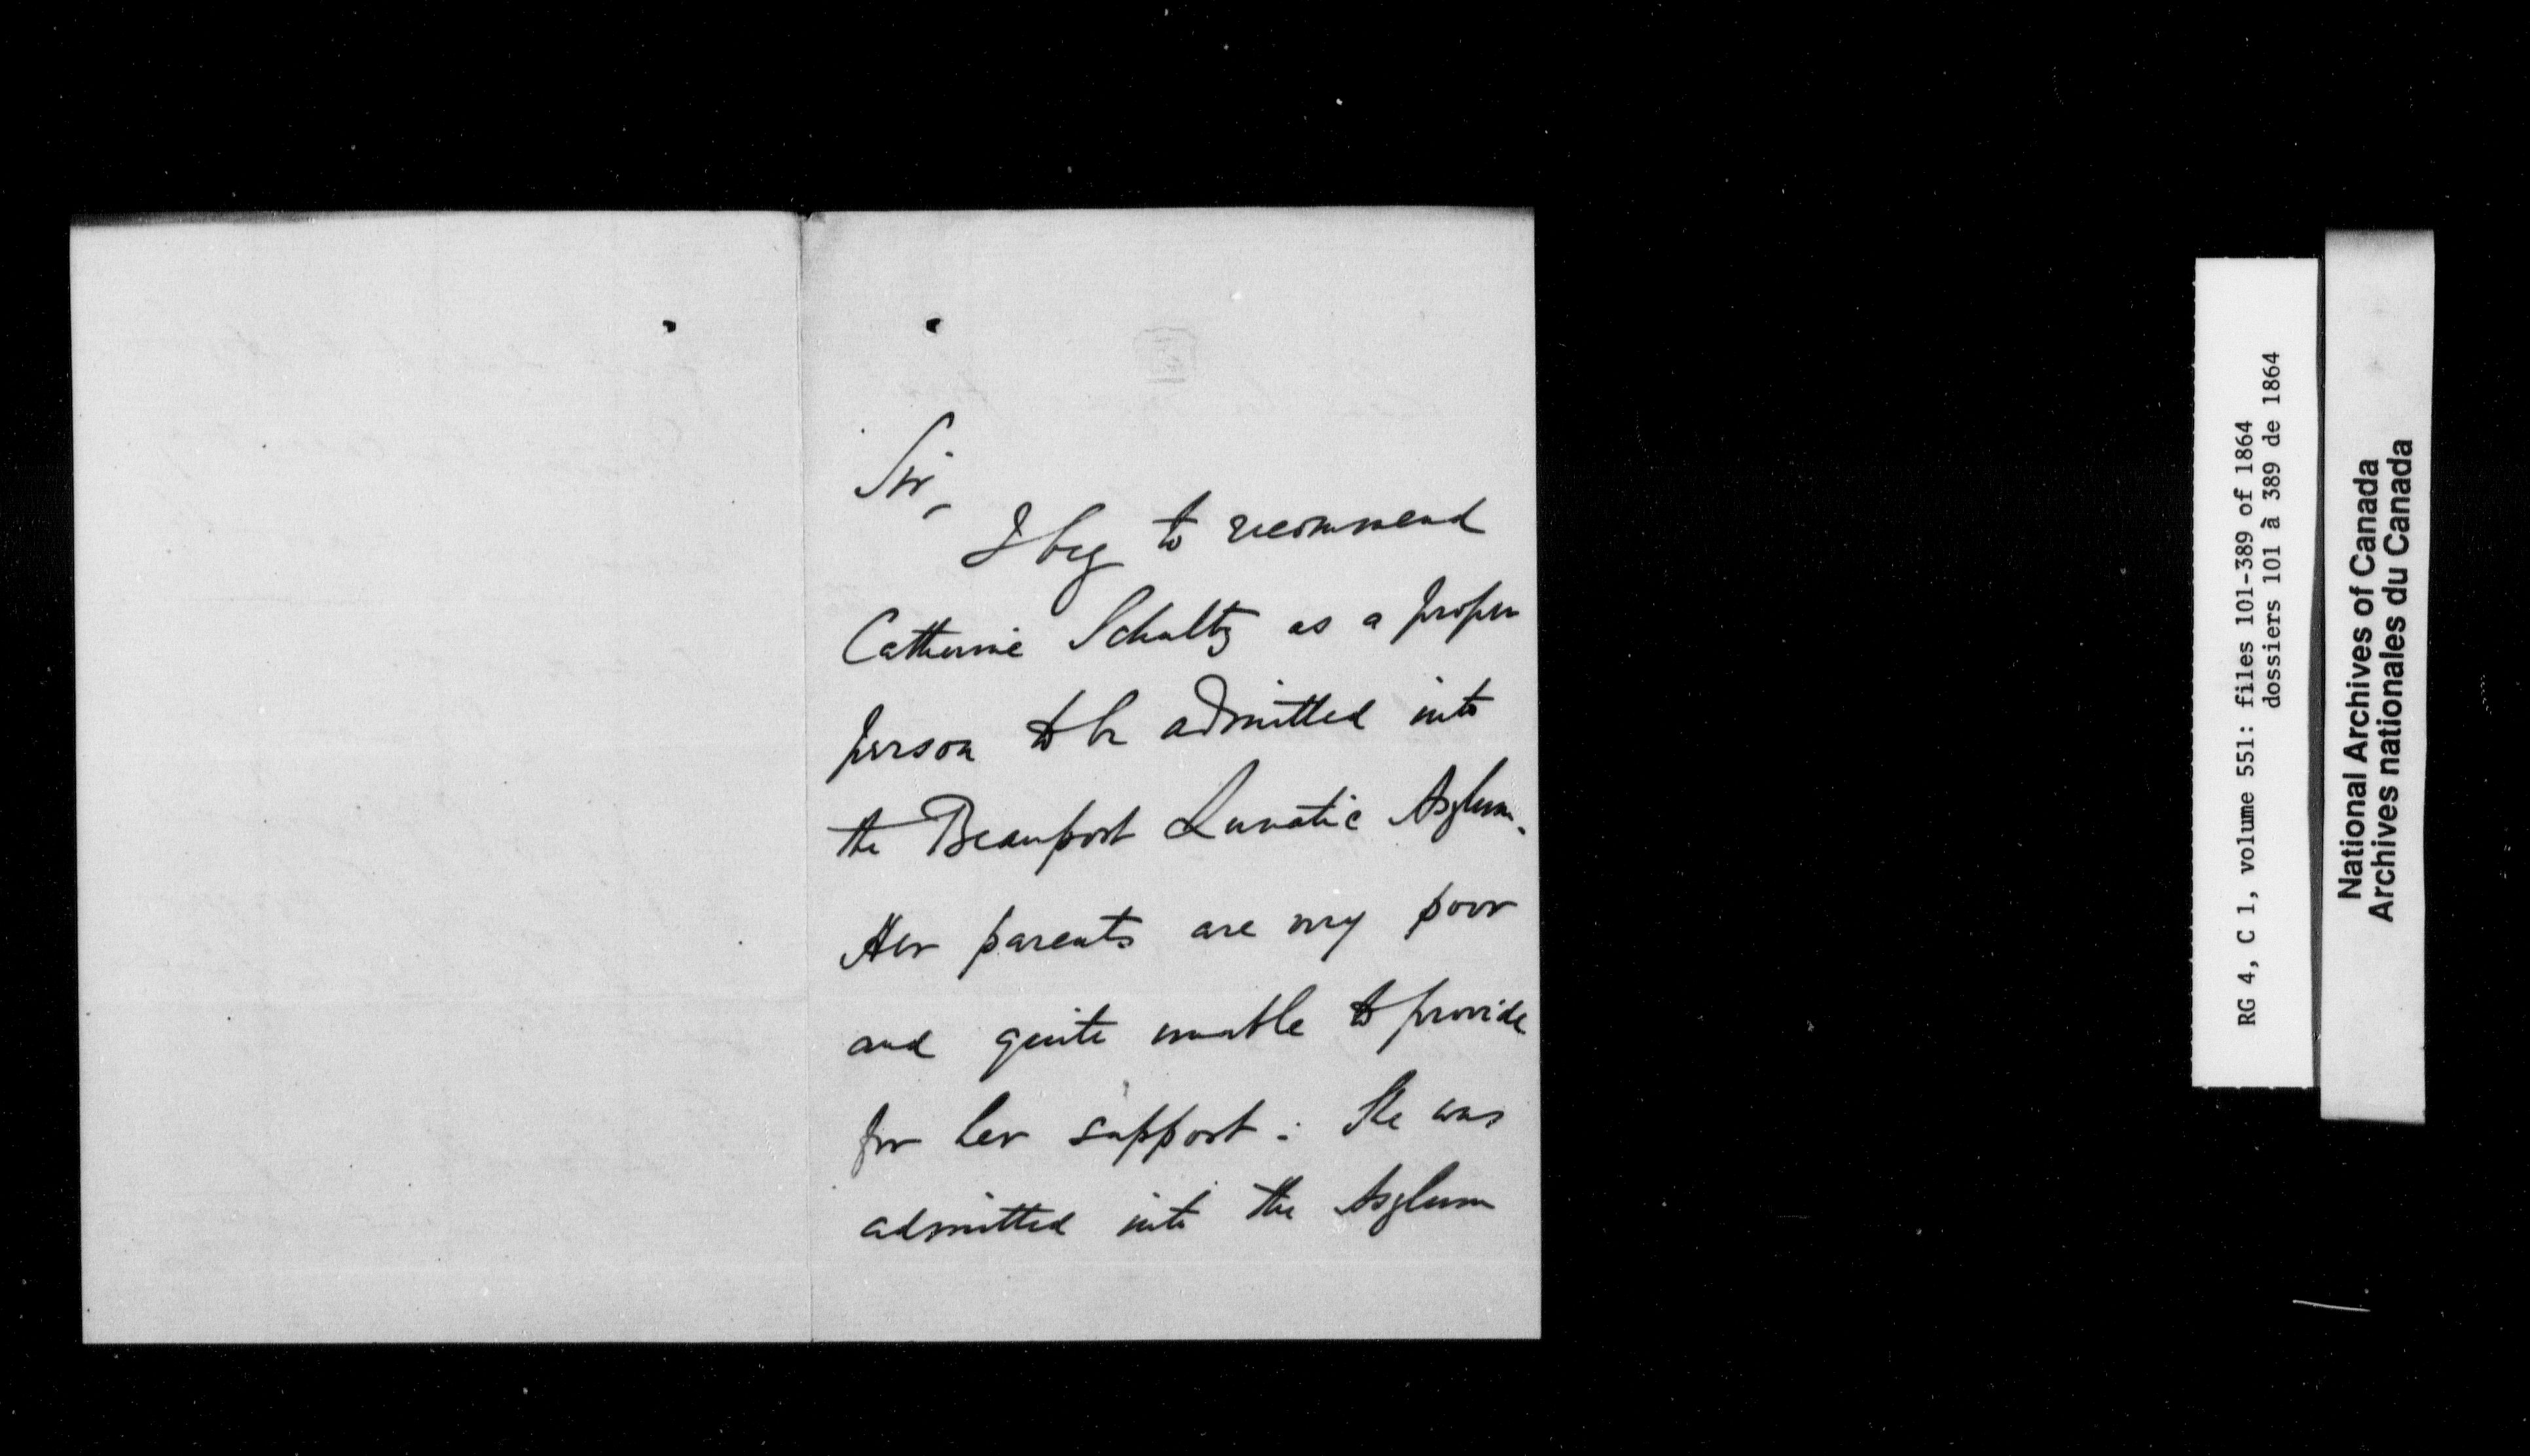 Sir,
I beg to recommend
Catherine Schultz as a proper
person to be admitted into
the Beauport Lunatic Asylum.
Her parents are very poor
and quite unable to provide
for her support. She was
admitted into the Asylum
RG 4, C 1, volume 551: files 101-389 of 1864
dossiers 101 à 389 de 1864
National Archives of Canada
Archives nationales du Canada